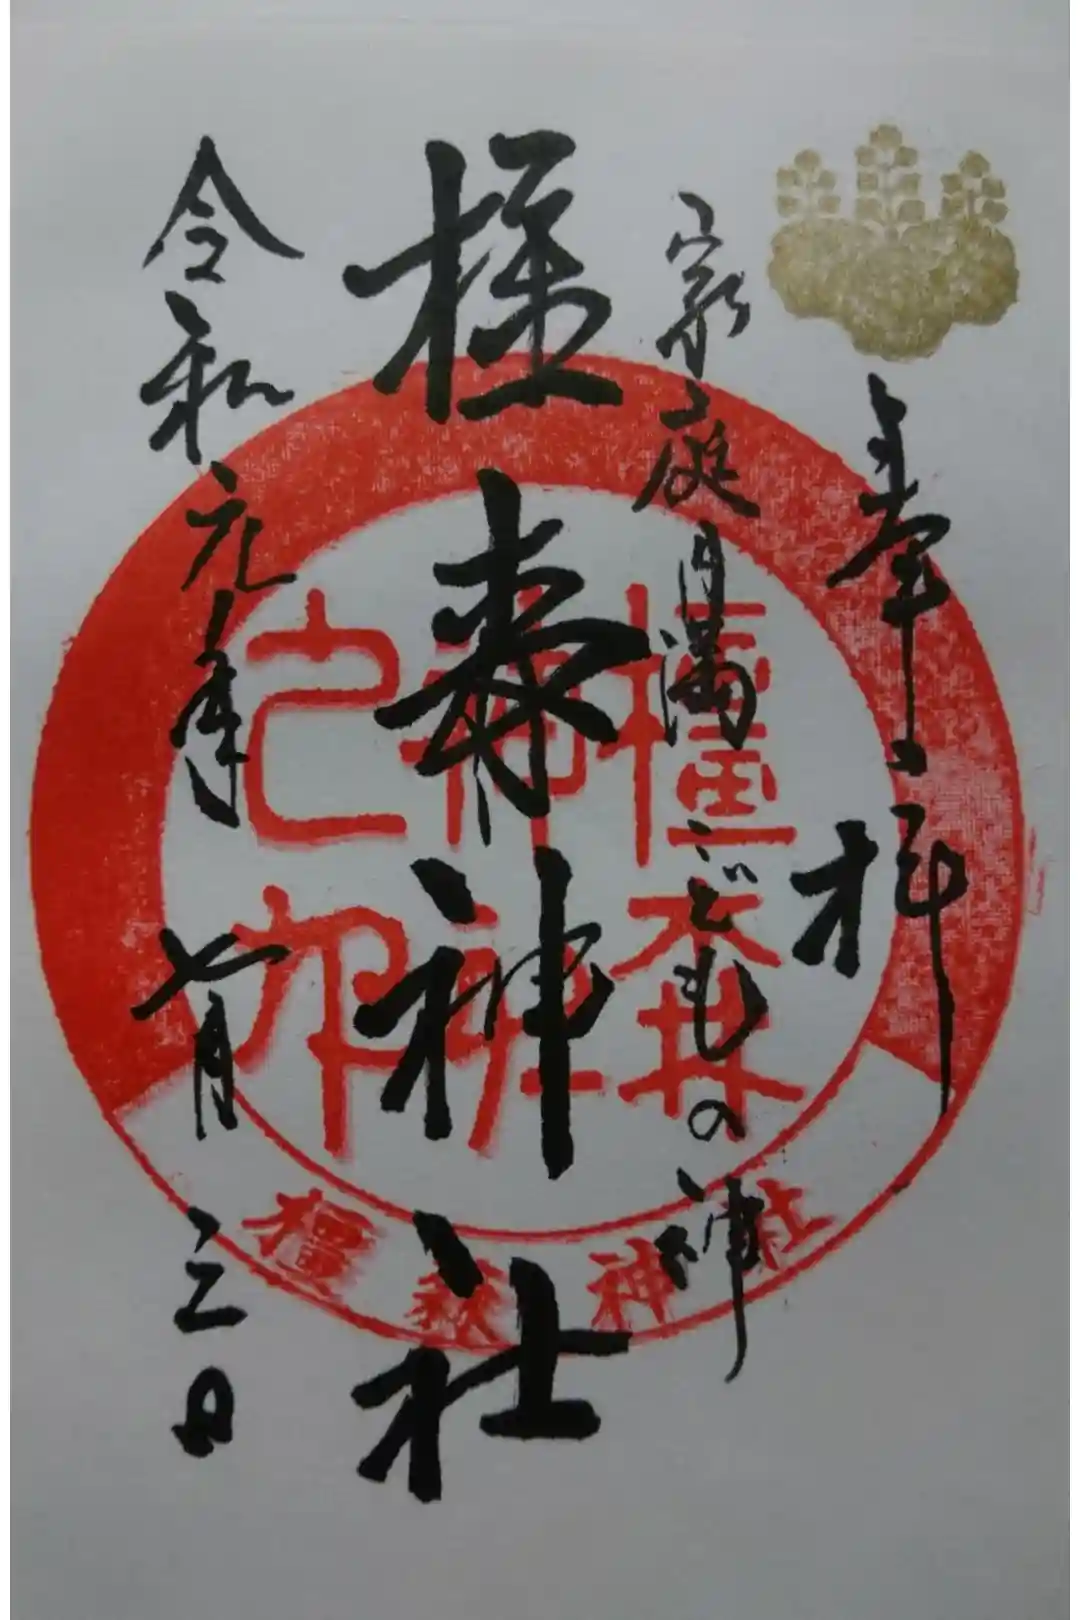 奉拝
家庭円満こどもの神
橿森神社
令和元年七月三日
橿森
神社
之印
橿森神社